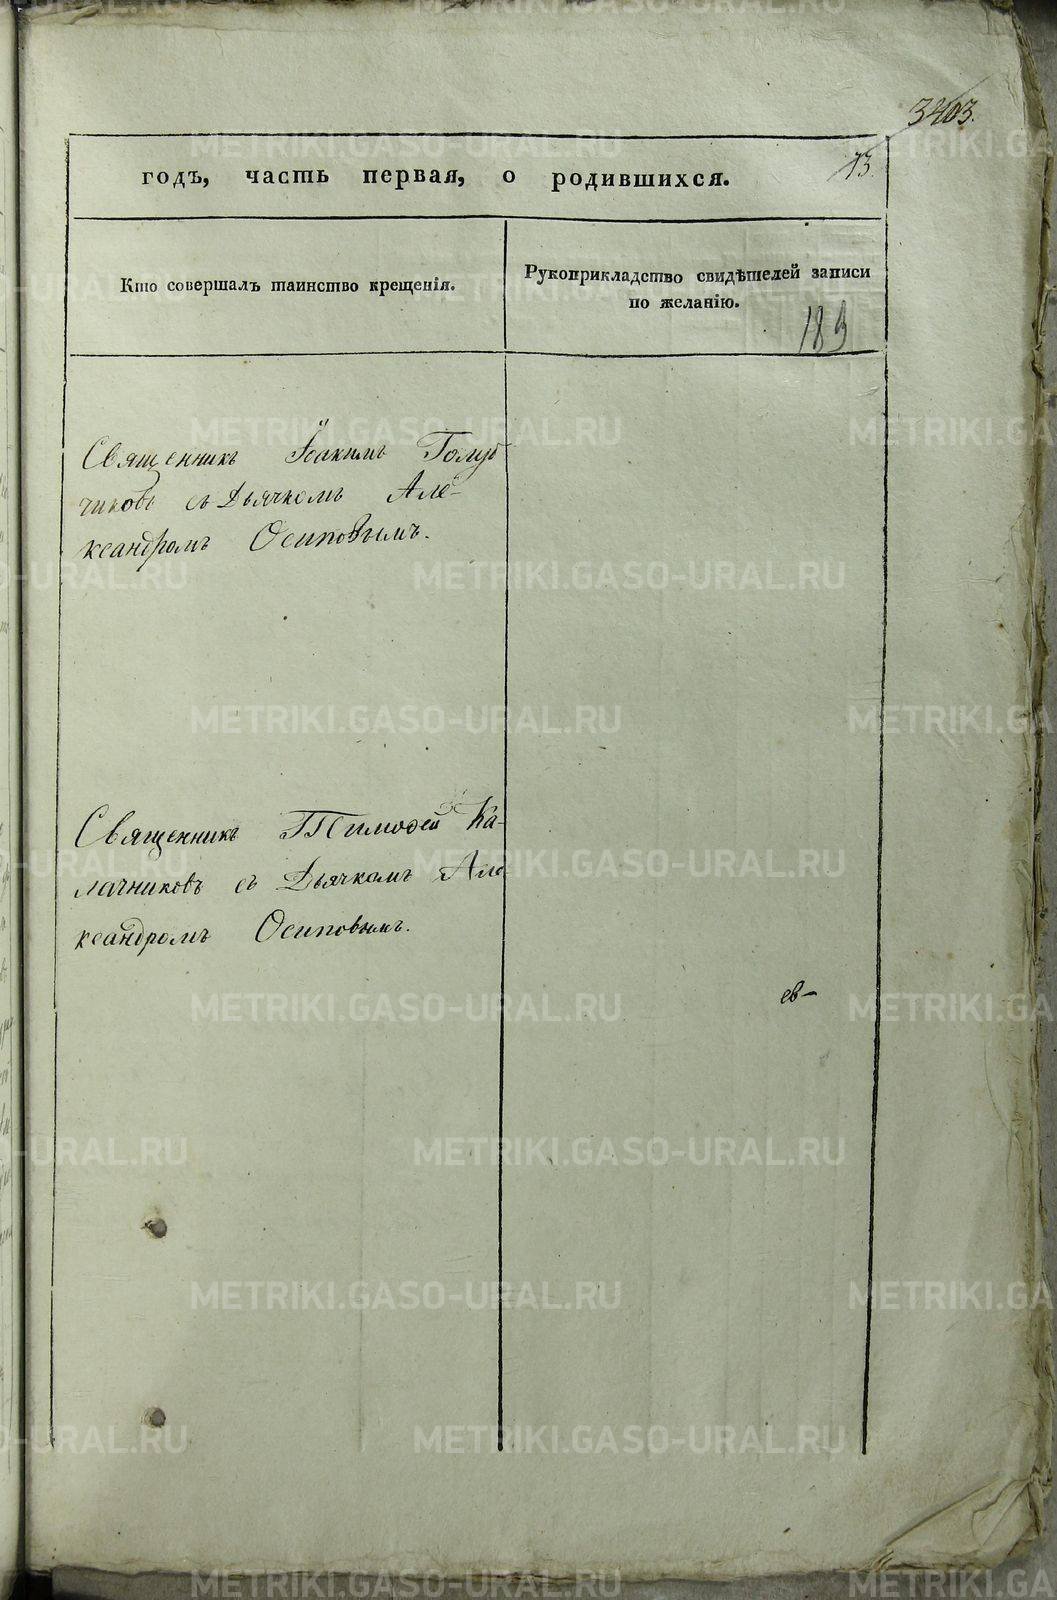 3403.
13.
годъ, часть первая, о родившихся.
Кто совершалъ таинство крещенія.
Рукоприкладство свидѣтелей записи
по желанію.
189
Священникъ Іоакимъ Голуб
чиковъ съ Дьячкомъ Але-
ксандромъ Осиповымъ.
Священникъ Тимофей Ка-
лачниковъ съ Дьячкомъ Але
ксандромъ Осиповымъ.
METRIKI.GASO-URAL.RU